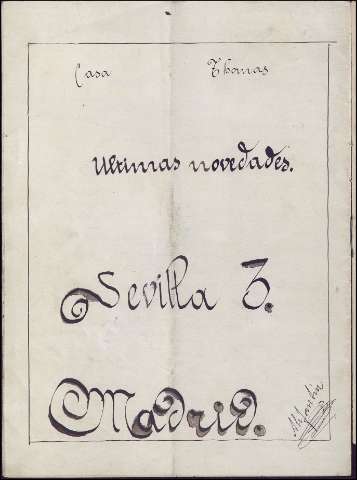 Casa Thomas
Ultimas novedades.
Sevilla 3.
Madrid.